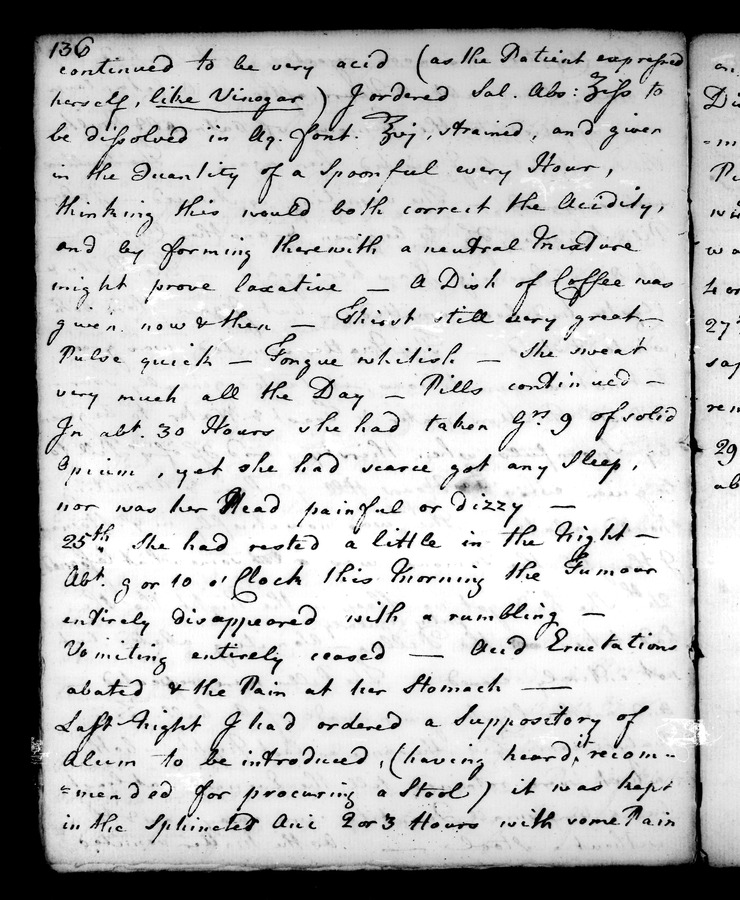 136
continued to be very acid (as the Patient expressed
herself, like Vinegar) I ordered Sal. Abs: ʒiſs to
be diſsolved in Aq. font. ℥vj, strained, and given
in the Quantity of a Spoonful every Hour,
thinking this would both correct the Acidity,
and by forming therewith a neutral Mixture
might prove laxative — A Dish of Coffee was
given now & then — Thirst still very great —
Pulse quick — Tongue whitish — She sweat
very much all the Day — Pills continued —
In abt. 30 Hours she had taken Grs 9 of solid
Opium, yet she had scarce got any Sleep,
nor was her Head painful or dizzy —
25th. She had rested a little in the Night —
Abt. 9 or 10 o'Clock this Morning the Tumour
entirely disappeared with a rumbling —
Vomiting entirely ceased — Acid Eructations
abated & the Pain at her Stomach —
Laſt Night I had ordered a Suppository of
Alum to be introduced, (having heard it recom-
=mended for procuring a Stool) it was kept
in the Sphincter Ani 2 or 3 Hours with some Pain
an
Di
=m
Pu
wi
wa
4 or
27
sap
ren
29
ab